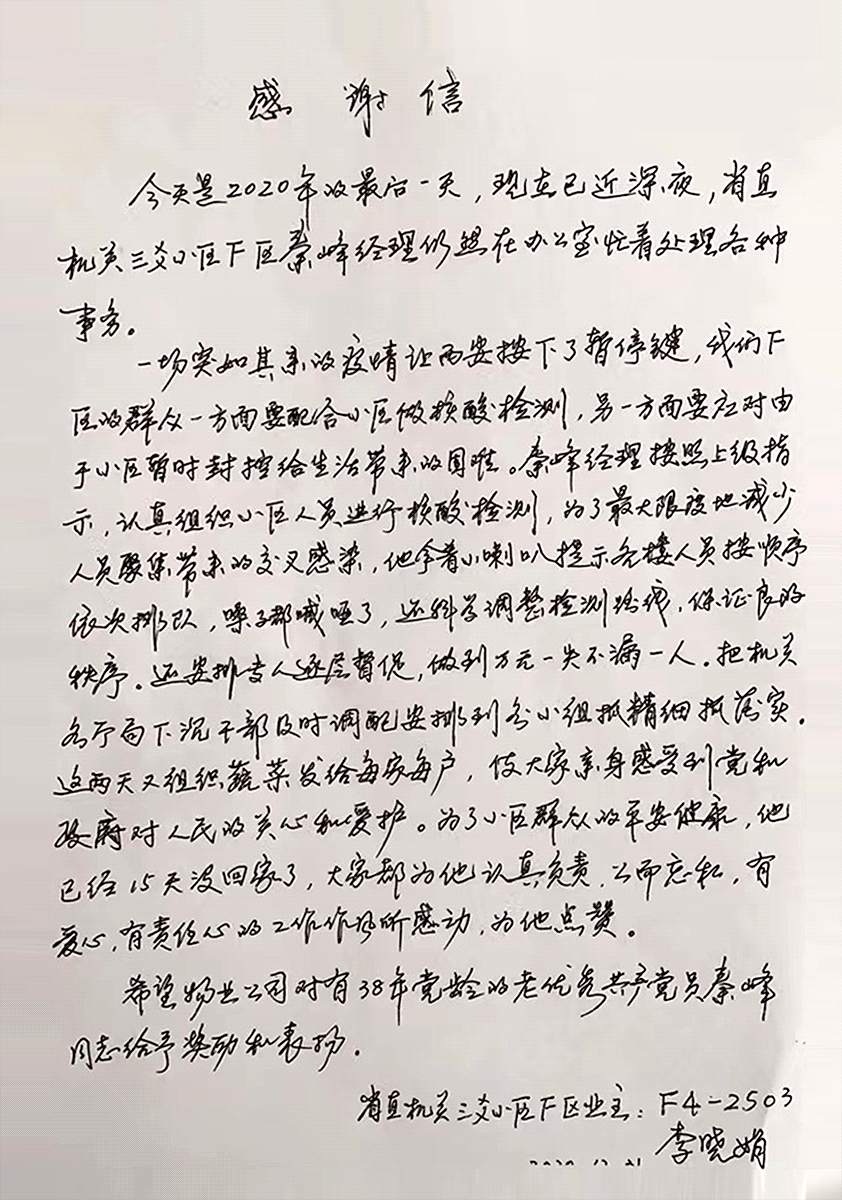 感谢信
今天是2020年的最后一天，现在已近深夜，省直
机关三爻小区F区秦峰经理仍然在办公室忙着处理各种
事务。
一场突如其来的疫情让西安按下了暂停键，我们F
区的群众一方面要配合小区做核酸检测，另一方面要应对由
于小区暂时封控给生活带来的困难。秦峰经理按照上级指
示，认真组织小区人员进行核酸检测，为了最大限度地减少
人员聚集带来的交叉感染，他拿着小喇叭提示各楼人员按顺序
依次排队，嗓子都喊哑了，还科学调整检测路线，保证良好
秩序。还安排专人逐层督促，做到万无一失不漏一人。把机关
各厅局下沉干部及时调配安排到各小组抓精细抓落实。
这两天又组织蔬菜发给每家每户，使大家亲身感受到党和
政府对人民的关心和爱护。为了小区群众的平安健康，他
已经15天没回家了，大家都为他认真负责，公而忘私，有
爱心，有责任心的工作作风所感动，为他点赞。
希望物业公司对有38年党龄的老优秀共产党员秦峰
同志给予奖励和表扬。
省直机关三爻小区F区业主：F4-2503
李晓娟